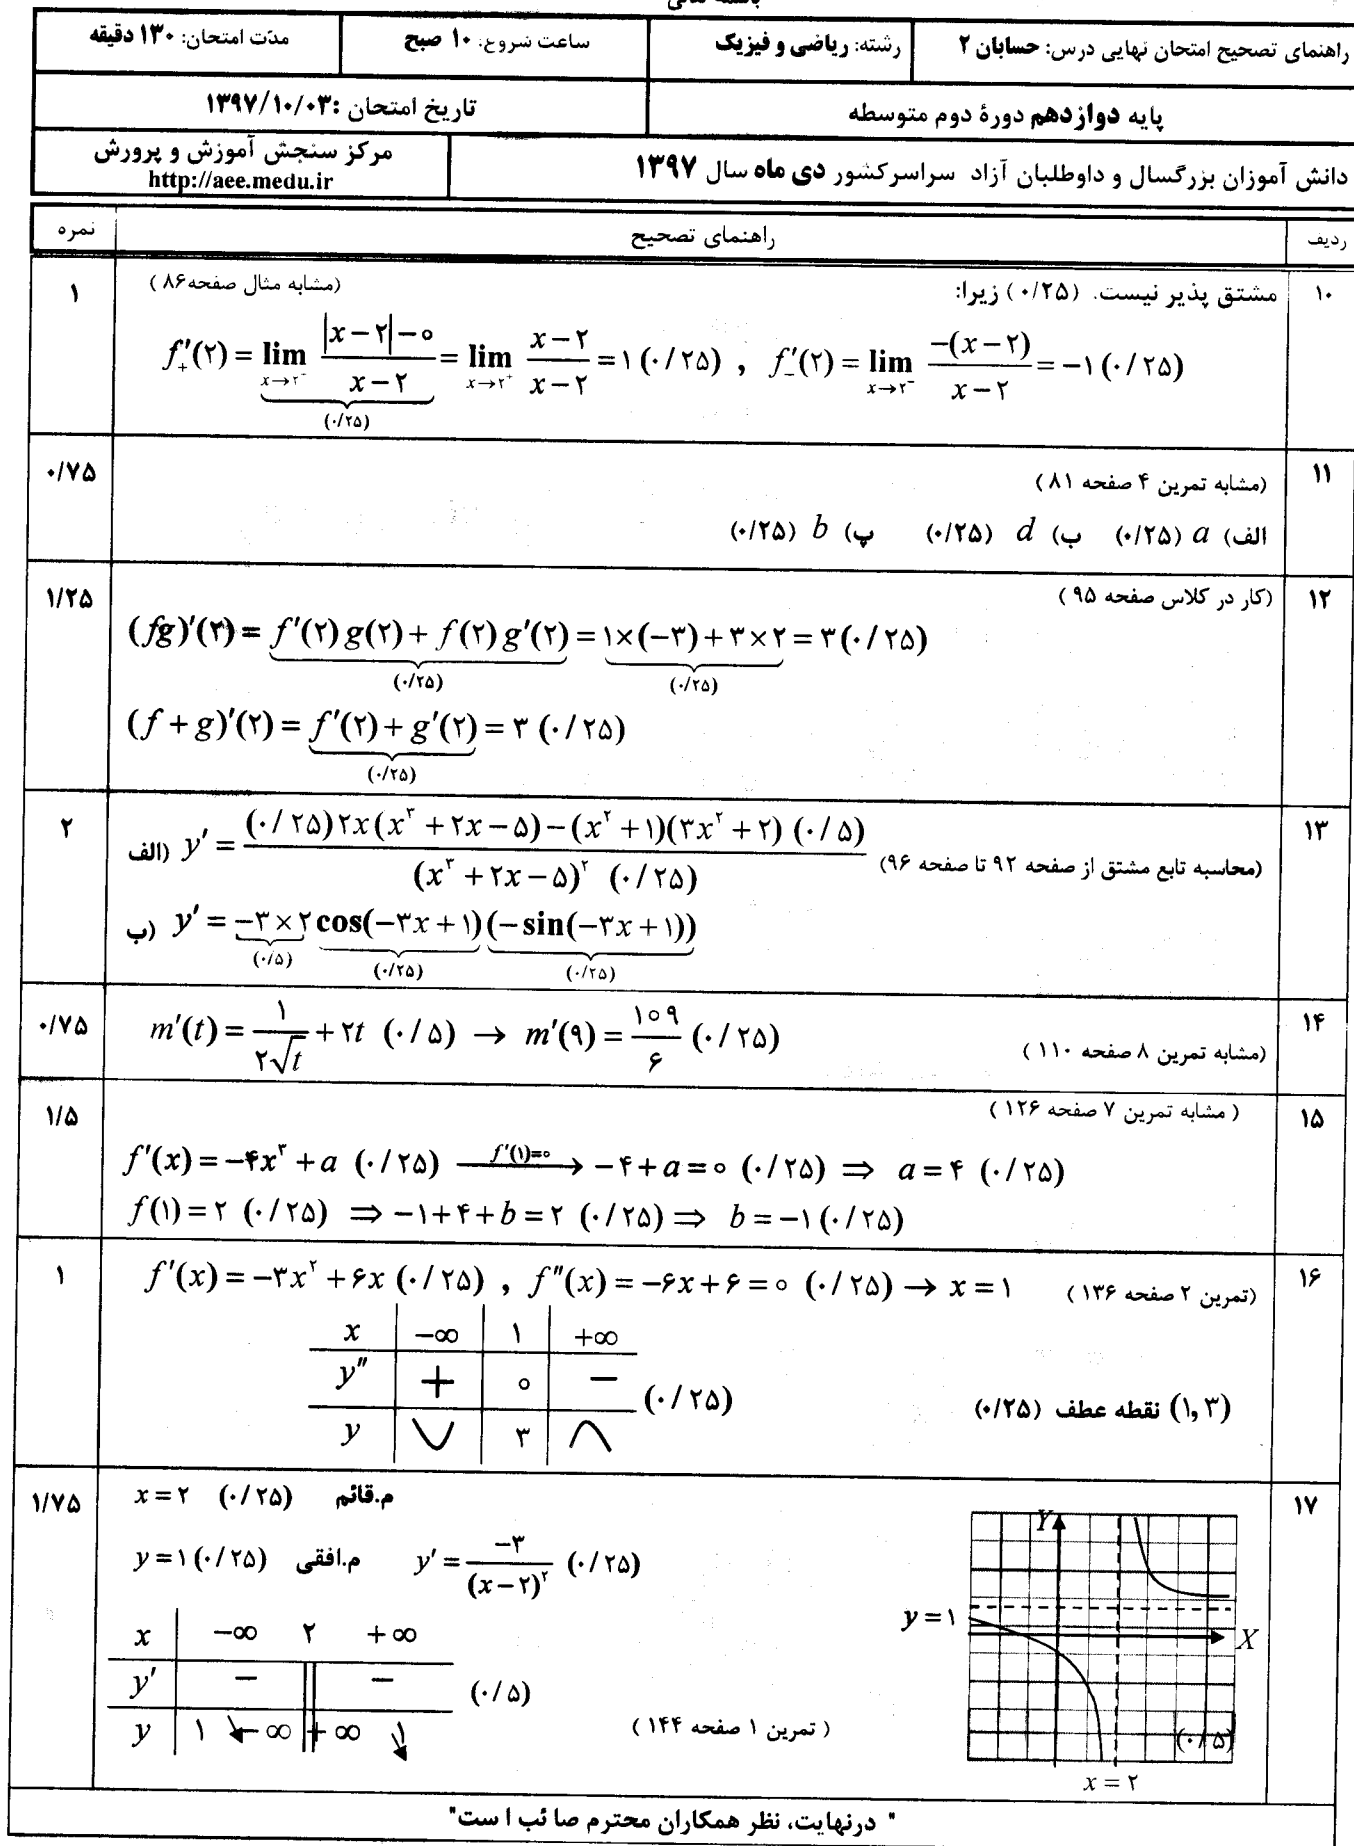 راهنمای تصحیح امتحان نهایی درس: حسابان ۲ رشته: ریاضی و فیزیک ساعت شروع: ۱۰ صبح مدّت امتحان: ۱۳۰ دقیقه
پایه دوازدهم دورهٔ دوم متوسطه تاریخ امتحان :۱۳۹۷/۱۰/۰۳
دانش آموزان بزرگسال و داوطلبان آزاد سراسرکشور دی ماه سال ۱۳۹۷ مرکز سنجش آموزش و پرورش
http://aee.medu.ir
ردیف راهنمای تصحیح نمره
۱۰ مشتق پذیر نیست. (۰/۲۵) زیرا: (مشابه مثال صفحه۸۶) ۱
f'₊(۲) = lim x→۲⁻ (|x−۲|−۰)/(x−۲) = lim x→۲⁺ (x−۲)/(x−۲) = ۱ (۰/۲۵) , f'₋(۲) = lim x→۲⁻ −(x−۲)/(x−۲) = −۱ (۰/۲۵)
(۰/۲۵)
۱۱ (مشابه تمرین ۴ صفحه ۸۱) ۰/۷۵
الف) a (۰/۲۵) ب) d (۰/۲۵) پ) b (۰/۲۵)
۱۲ (کار در کلاس صفحه ۹۵) ۱/۲۵
(fg)'(۲) = f'(۲)g(۲) + f(۲)g'(۲) = ۱×(−۳) + ۳×۲ = ۳ (۰/۲۵)
(۰/۲۵) (۰/۲۵)
(f+g)'(۲) = f'(۲) + g'(۲) = ۳ (۰/۲۵)
(۰/۲۵)
۱۳ (محاسبه تابع مشتق از صفحه ۹۲ تا صفحه ۹۶) ۲
الف) y' = (۰/۲۵) ۲x(x³ + ۲x − ۵) − (x² + ۱)(۳x² + ۲) (۰/۵) / (x³ + ۲x − ۵)² (۰/۲۵)
ب) y' = −۳×۲ cos(−۳x + ۱)(−sin(−۳x + ۱))
(۰/۵) (۰/۲۵) (۰/۲۵)
۱۴ m'(t) = ۱/(۲√t) + ۲t (۰/۵) → m'(۹) = ۱۰۹/۶ (۰/۲۵) (مشابه تمرین ۸ صفحه ۱۱۰) ۰/۷۵
۱۵ (مشابه تمرین ۷ صفحه ۱۲۶) ۱/۵
f'(x) = −۴x³ + a (۰/۲۵) f'(۱)=۰ → −۴ + a = ۰ (۰/۲۵) ⇒ a = ۴ (۰/۲۵)
f(۱) = ۲ (۰/۲۵) ⇒ −۱ + ۴ + b = ۲ (۰/۲۵) ⇒ b = −۱ (۰/۲۵)
۱۶ f'(x) = −۳x² + ۶x (۰/۲۵) , f''(x) = −۶x + ۶ = ۰ (۰/۲۵) → x = ۱ (تمرین ۲ صفحه ۱۳۶) ۱
x −∞ ۱ +∞
y'' + ۰ − (۰/۲۵)
(۱,۳) نقطه عطف (۰/۲۵)
y ∪ ۳ ∩
۱۷ x = ۲ (۰/۲۵) م.قائم ۱/۷۵
y = ۱ (۰/۲۵) م.افقی y' = −۳/(x−۲)² (۰/۲۵)
x −∞ ۲ +∞
y' − − (۰/۵)
y ۱ ↘ −∞ +∞ ↘ ۱
(تمرین ۱ صفحه ۱۴۴)
Y
y = ۱
X
(۰/۵)
x = ۲
" درنهایت، نظر همکاران محترم صائب است"